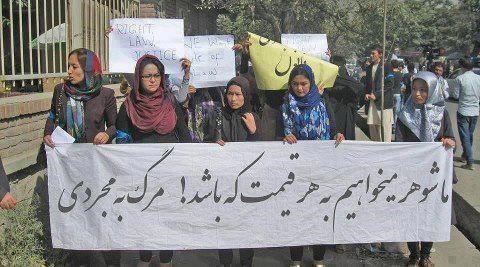 RIGHT,
LAW,
JUSTICE
WE
of
law
ما شوهر میخواهیم به هر قیمت که باشد! مرگ به مجردی